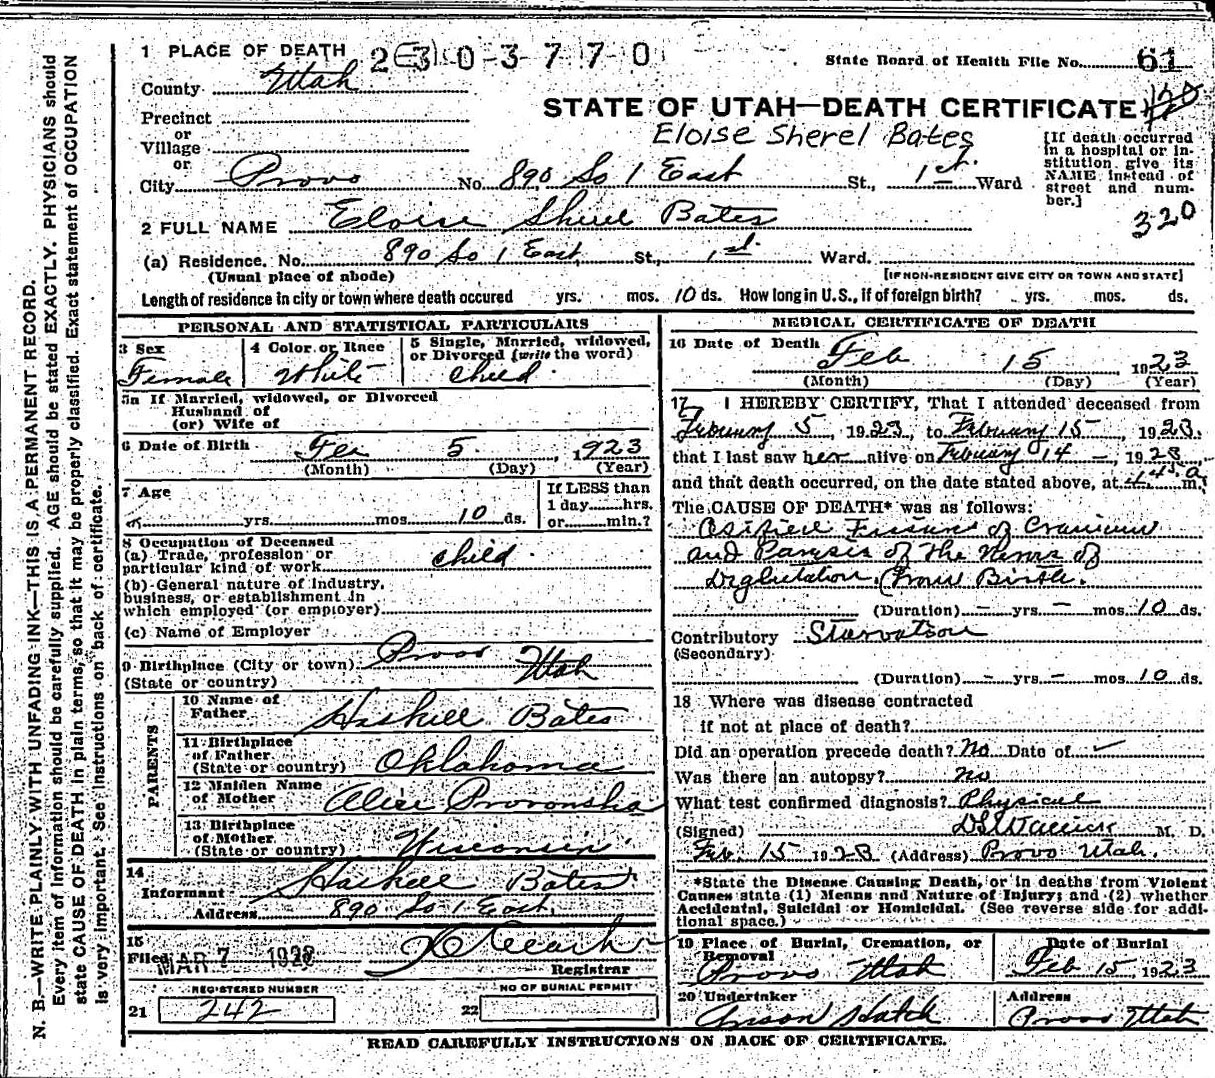 1 PLACE OF DEATH
State Board of Health File No. 61
County Utah
STATE OF UTAH—DEATH CERTIFICATE
Precinct
or
Village
or
Eloise Sherel Bates
[If death occurred
in a hospital or in-
stitution give its
NAME instead of
street and num-
ber.]
City Provo No. 890 So 1 East St., 1st. Ward
320
2 FULL NAME Eloise Bates
(a) Residence. No. 890 So 1 East St., 1st. Ward.
(Usual place of abode) [IF NON-RESIDENT GIVE CITY OR TOWN AND STATE]
Length of residence in city or town where death occured yrs. mos. 10 ds. How long in U.S., if of foreign birth? yrs. mos. ds.
PERSONAL AND STATISTICAL PARTICULARS
3 Sex
Female
4 Color or Race
White
5 Single, Married, widowed,
or Divorced (write the word)
Child.
5a If Married, widowed, or Divorced
Husband of
(or) Wife of
6 Date of Birth 5. 1923
(Month) (Day) (Year)
7 Age
yrs. mos. 10 ds.
If LESS than
1 day hrs.
or min.?
8 Occupation of Deceased
(a) Trade, profession or
particular kind of work child.
(b) General nature of industry,
business, or establishment in
which employed (or employer)
(c) Name of Employer
9 Birthplace (City or town) Provo
(State or country) Utah
PARENTS
10 Name of
Father Haskell Bates
11 Birthplace
of Father
(State or country) Oklahoma
12 Maiden Name
of Mother Alice Provonsha
13 Birthplace
of Mother
(State or country) Wisconsin
14
Informant Haskell Bates
Address 890 So 1 East.
15
Filed MAR 7
Registrar
REGISTERED NUMBER
21 242
NO OF BURIAL PERMIT
22
MEDICAL CERTIFICATE OF DEATH
16 Date of Death Feb 15, 1923
(Month) (Day) (Year)
17 I HEREBY CERTIFY, That I attended deceased from
February 5, 1923, to February 15, 1923.
that I last saw her alive on February 14 —, 1923,
and that death occurred, on the date stated above, at m.
The CAUSE OF DEATH* was as follows:
of Cranium
and Paresis of the Nerves of
Deglutation. From Birth.
(Duration) — yrs. — mos. 10 ds.
Contributory Starvation
(Secondary)
(Duration) — yrs. — mos. 10 ds.
18 Where was disease contracted
if not at place of death?
Did an operation precede death? No Date of
Was there an autopsy? no
What test confirmed diagnosis? Physical
(Signed) M. D.
Feb. 15 1923 (Address) Provo Utah.
*State the Disease Causing Death, or in deaths from Violent
Causes state (1) Means and Nature of Injury; and (2) whether
Accidental, Suicidal or Homicidal. (See reverse side for addi-
tional space.)
19 Place of Burial, Cremation, or
Removal
Provo Utah
Date of Burial
Feb 15, 1923
20 Undertaker
Anson Hatch
Address
Provo Utah
READ CAREFULLY INSTRUCTIONS ON BACK OF CERTIFICATE.
N. B.—WRITE PLAINLY WITH UNFADING INK—THIS IS A PERMANENT RECORD.
Every item of information should be carefully supplied. AGE should be stated EXACTLY. PHYSICIANS should
state CAUSE OF DEATH in plain terms, so that it may be properly classified. Exact statement of OCCUPATION
is very important. See instructions on back of certificate.